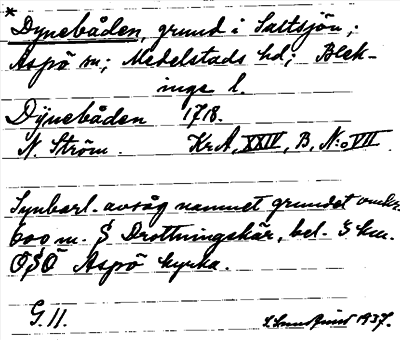 *
Dynebåden, grund i Saltsjön;
Aspö sn; Medelstads hd; Blek-
inge l.
Dÿnebåden 1718.
N. Ström. Kr A, XXIV, B, N:o VII
Synbarl. avsåg namnet grundet omkr.
600 m. S Drottningskär, bel. 3 km.
OSO Aspö kyrka.
G. 11. 1937.